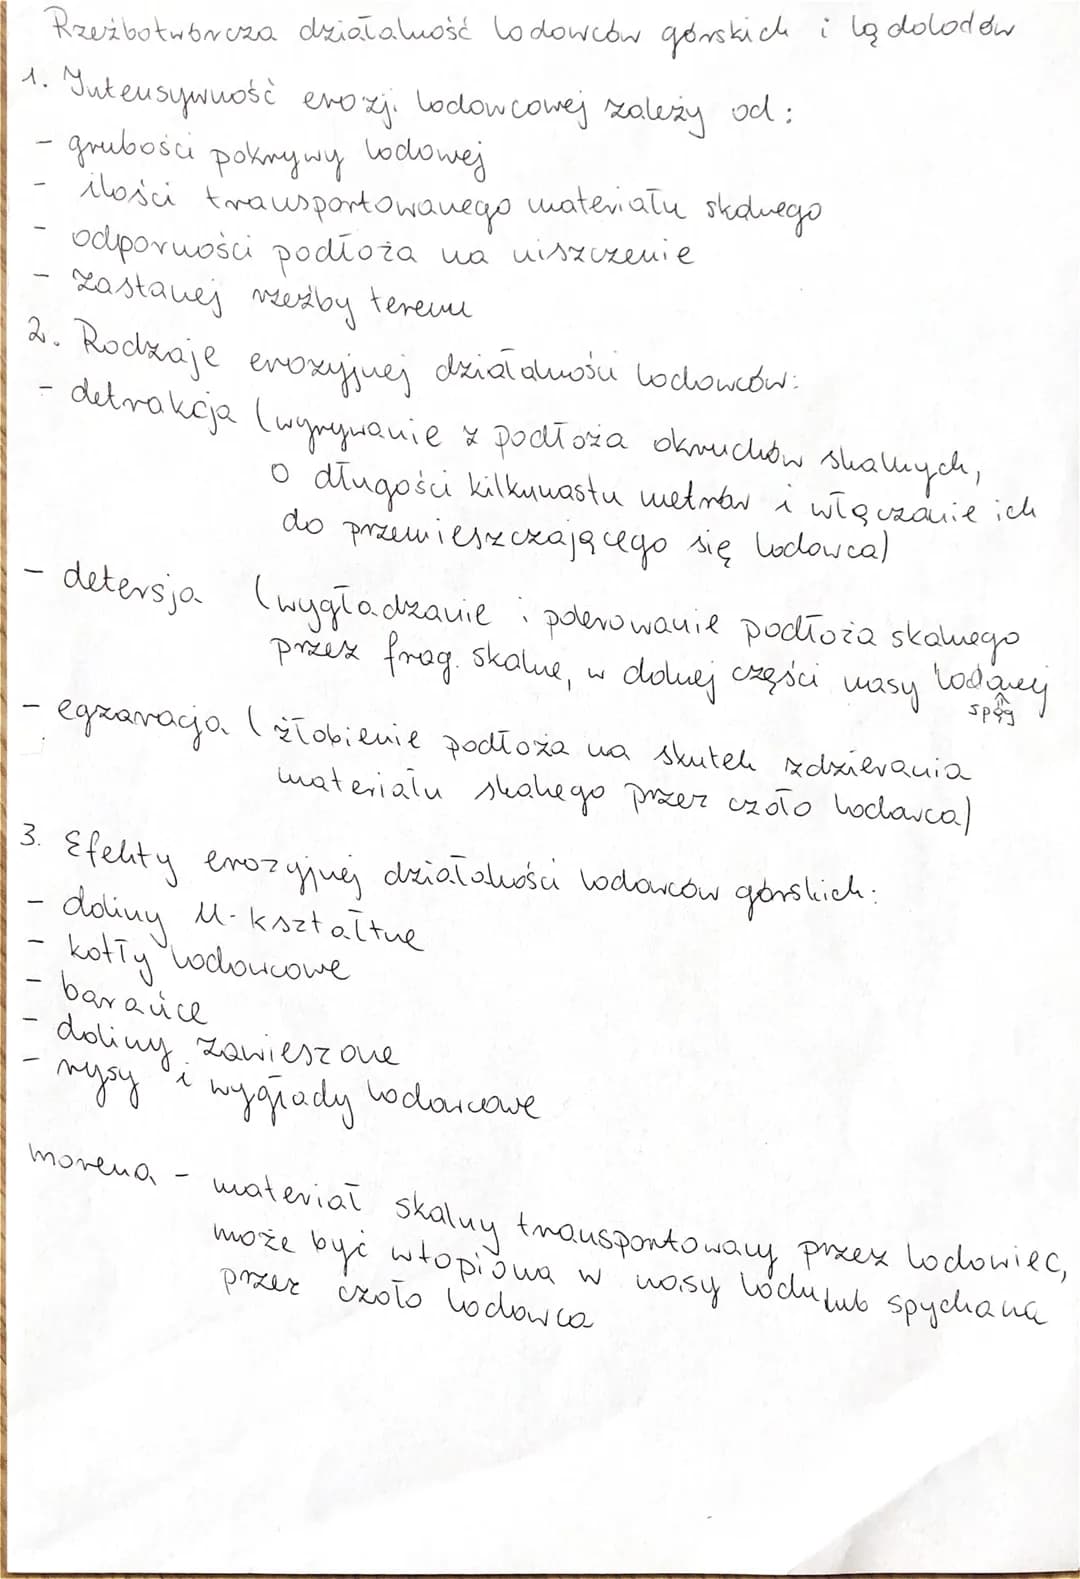 Rzeźbotwórcza działalność lodowców górskich i lądolodów
1. Intensywność erozji lodowcowej zależy od:
- grubości pokrywy lodowej
- ilości transportowanego materiału skalnego
- odporności podłoża na niszczenie
- zastanej rzeźby terenu
2. Rodzaje erozyjnej działalności lodowców:
- detrakcja (wyrywanie z podłoża okruchów skalnych,
o długości kilkunastu metrów i włączanie ich
do przemieszczającego się lodowca)
- detersja (wygładzanie i polerowanie podłoża skalnego
przez frag. skalne, w dolnej części masy lodowej
↑
spąg
- egzaracja (żłobienie podłoża na skutek zdzierania
materiału skalnego przez czoło lodowca)
3. Efekty erozyjnej działalności lodowców górskich:
- doliny U-kształtne
- kotły lodowcowe
- barańce
- doliny zawieszone
- rysy i wygłady lodowcowe
morena - materiał skalny transportowany przez lodowiec,
może być wtopiona w masy lodu lub spychana
przez czoło lodowca